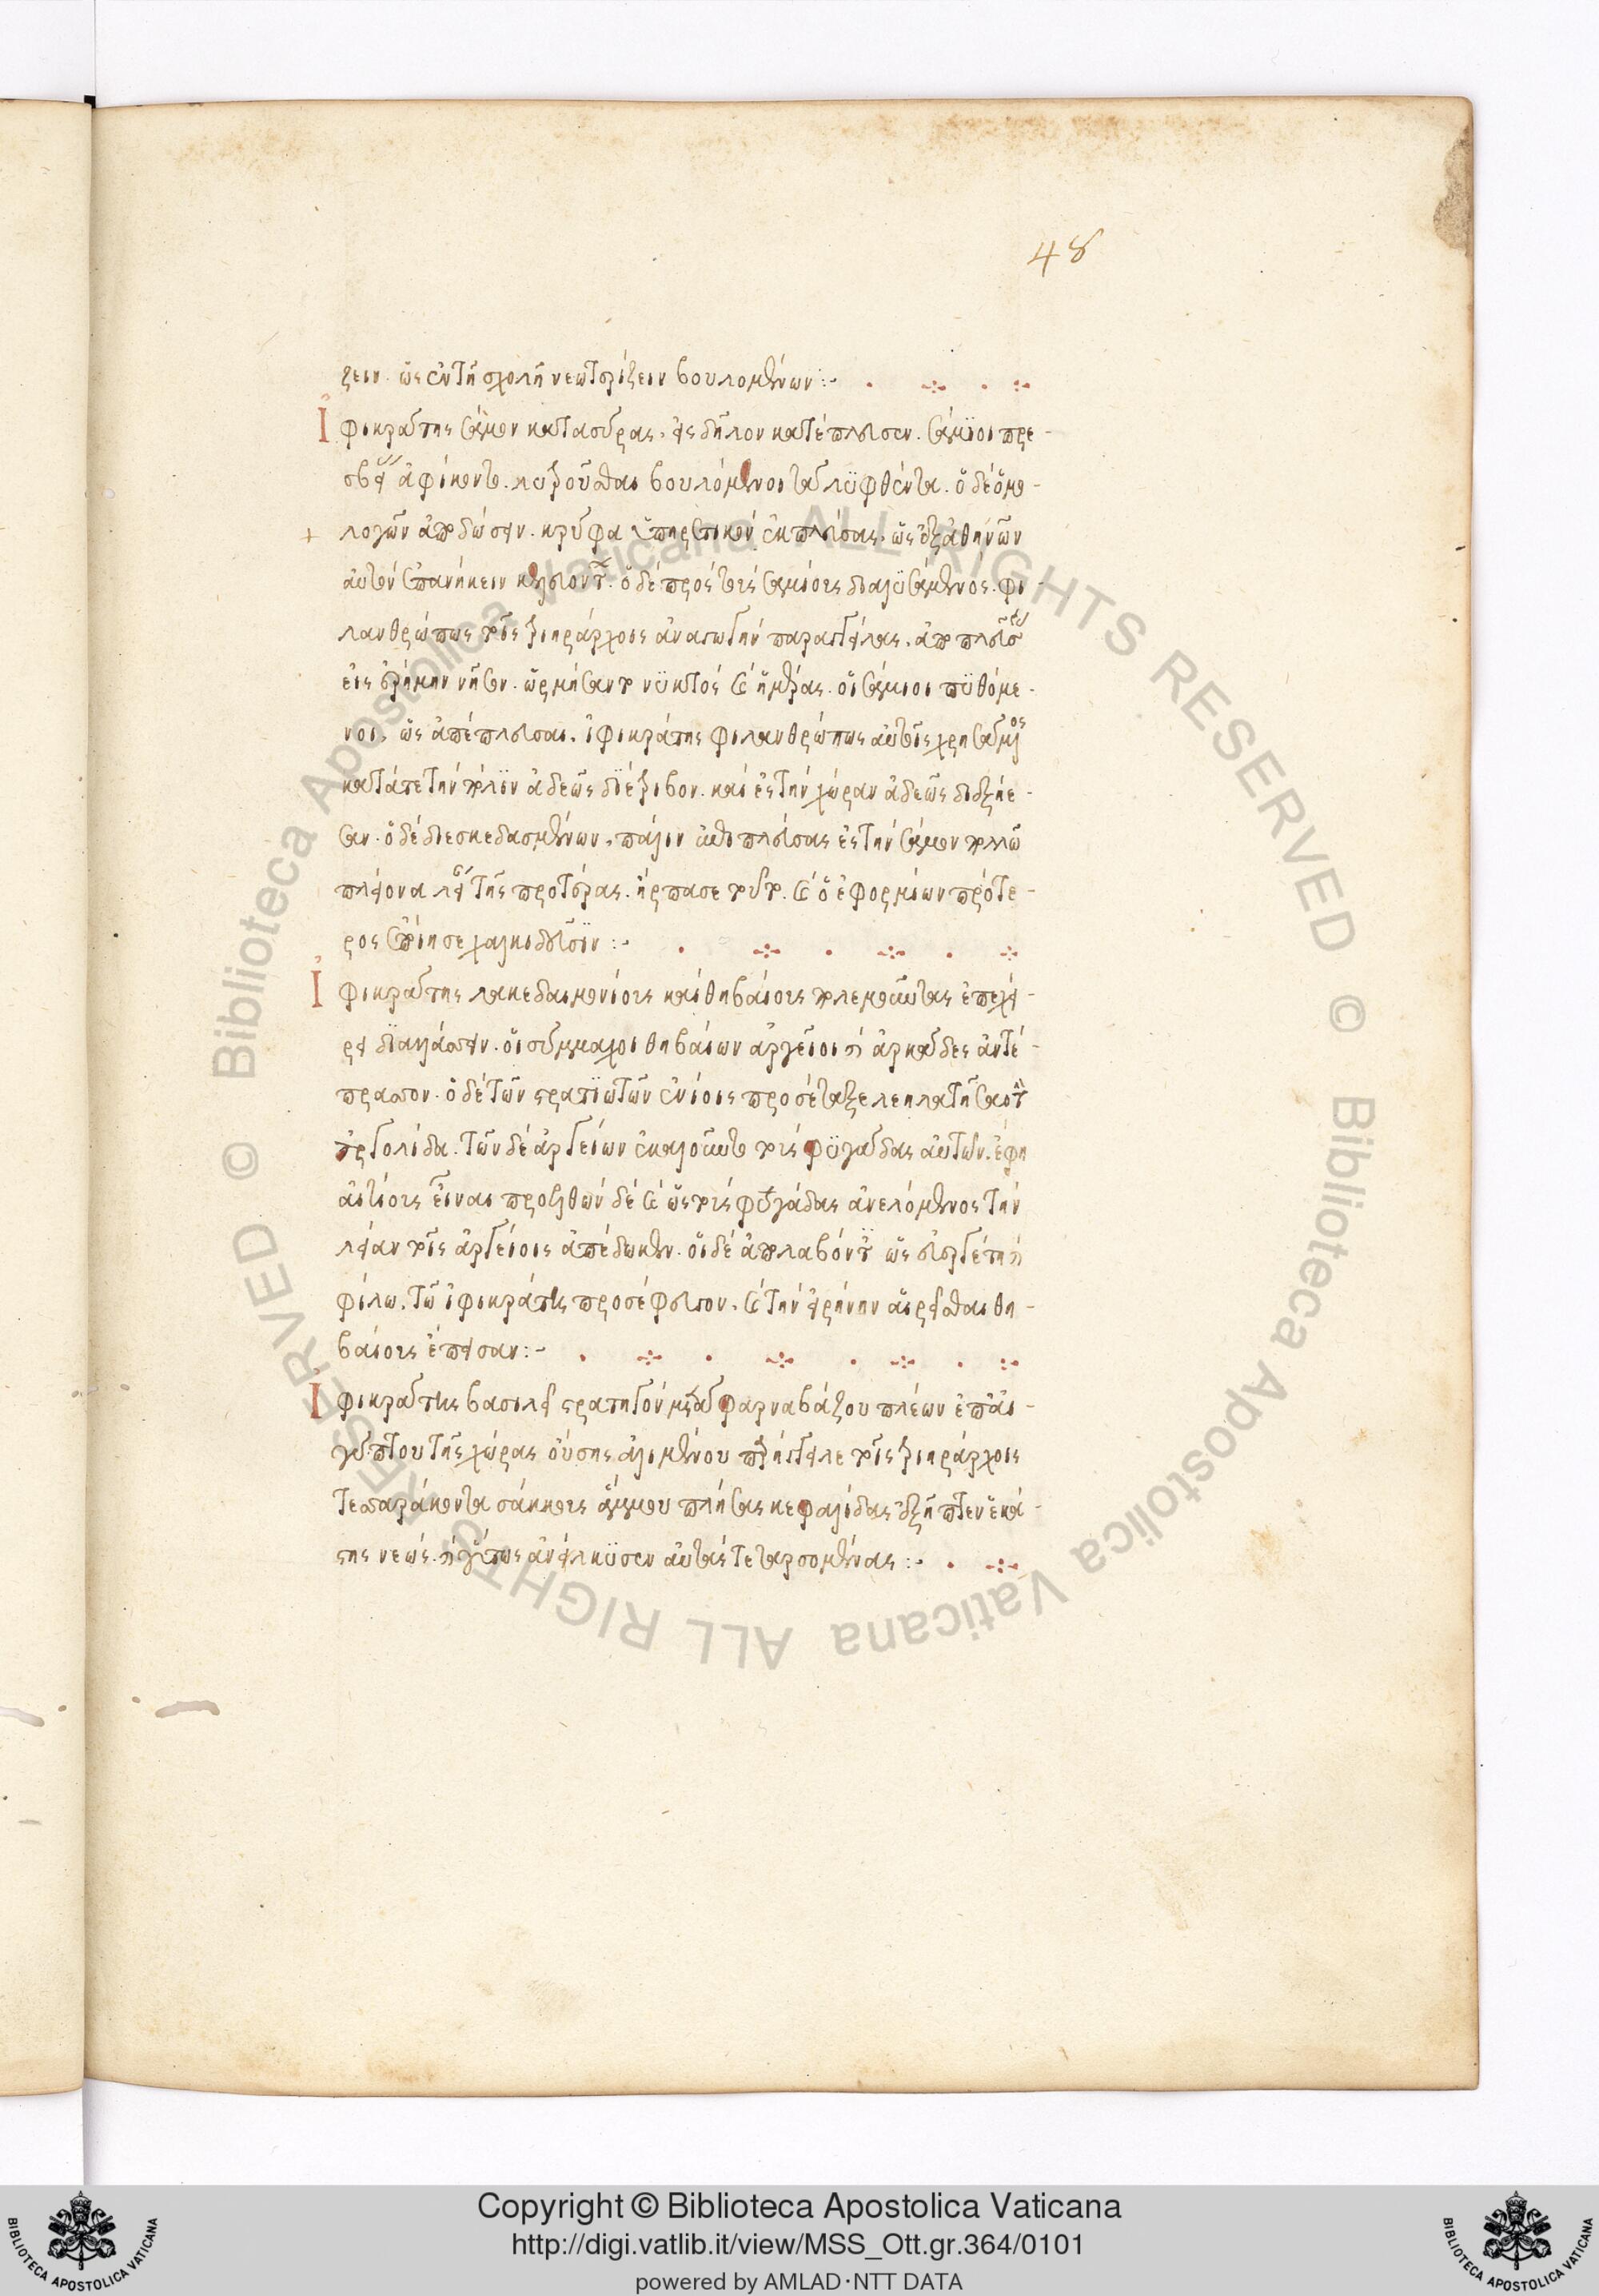 48
ξειν. ὡς ἐν τῇ σχολῇ νεωτερίζειν βουλομένων:-
Ἰφικράτης σάμον κατασύρας, εἰς δῆλον κατέπλευσεν. σάμιοι πρε-
σβεις ἀφίκοντο. λυτροῦσθαι βουλόμενοι τὰ λυφθέντα. ὁ δὲ ὁμο-
λογῶν ἀποδώσειν. κρύφα ὑπηρετικὸν ἐκπλεύσας. ὡς ἐξ ἀθηνῶν
αὐτὸν ἐπανήκειν κελεύοντος. ὁ δὲ πρὸς τοὺς σαμίους διαλυσάμενος. φι
λανθρώπως τοῖς τριηράρχοις ἀνάπω τὴν παραστείλας. ἀποπλεύσας
εἰς ἐρήμην νῆσον. ὥρμησαν το νυκτὸς καὶ ἡμέρας. οἱ σάμιοι πυθόμε-
νοι, ὡς ἀπέπλευσαι. ἰφικράτης φιλανθρώπως αὐτοῖς χρησάμενος
κατά τε τὴν πόλιν ἀδεῶς διέτριβον. καὶ ἐς τὴν χώραν ἀδεῶς διεξήε-
σαν. ὁ δὲ διεσκεδασμένων, πάλιν ἐπιπλεύσας ἐς τὴν σάμον πολλῶ
πλείονα λείαν τῆς προτέρας. ἥρπασε τοῦτο. καὶ ὁ ἐφορμίων πρότε-
ρος ἐποίησε χαλκιδεῦσιν:-
Ἰφικράτης λακεδαιμονίοις καὶ θηβαίοις πολεμοῦντας ἐπεχεί-
ρει διαλλάσσειν. οἱ σύμμαχοι θηβαίων ἀργεῖοι καὶ ἀρκάδες ἀντέ-
πρασσον. ὁ δὲ τῶν στρατιωτῶν ἐνίοις προσέταξε λεηλατῆσαι τὴν
ἀργολίδα. τῶν δὲ ἀργείων ἐγκαλούντων τοὺς φυγάδας αὐτῶν. ἔφη
αἰτίους εἶναι προελθὼν δὲ καὶ ὡς τοὺς φυγάδας ἀνελόμενος τὴν
λείαν τοῖς ἀργείοις ἀπέδωκεν. οἱ δὲ ἀπολαβόντες ὡς εὐεργέτη καὶ
φίλω. τῶ ἰφικράτει προσέφευγον. καὶ τὴν εἰρήνην αἱρεῖσθαι θη-
βαίους ἔπεισαν:-
Ἰφικράτης βασιλεῖ στρατηγῶν μετὰ φαρναβάζου πλέων ἐπ᾽ αἰ-
γύπτου τῆς χώρας οὔσης ἀλιμένου παρήγγειλε τοῖς τριηράρχοις
τεσσαράκοντα σάκκους ἄμμου πλήσας κεφαλίδας ἐξῆπτεν ἑκά-
στης νεώς. καὶ οὕτως ἀνείλκυσεν αὐτὰς τεταρσομένας:-
Copyright © Biblioteca Apostolica Vaticana
http://digi.vatlib.it/view/MSS_Ott.gr.364/0101
powered by AMLAD·NTT DATA
BIBLIOTECA APOSTOLICA VATICANA
BIBLIOTECA APOSTOLICA VATICANA
© Biblioteca Apostolica Vaticana ALL RIGHTS RESERVED © Biblioteca Apostolica Vaticana ALL RIGHTS RESERVED